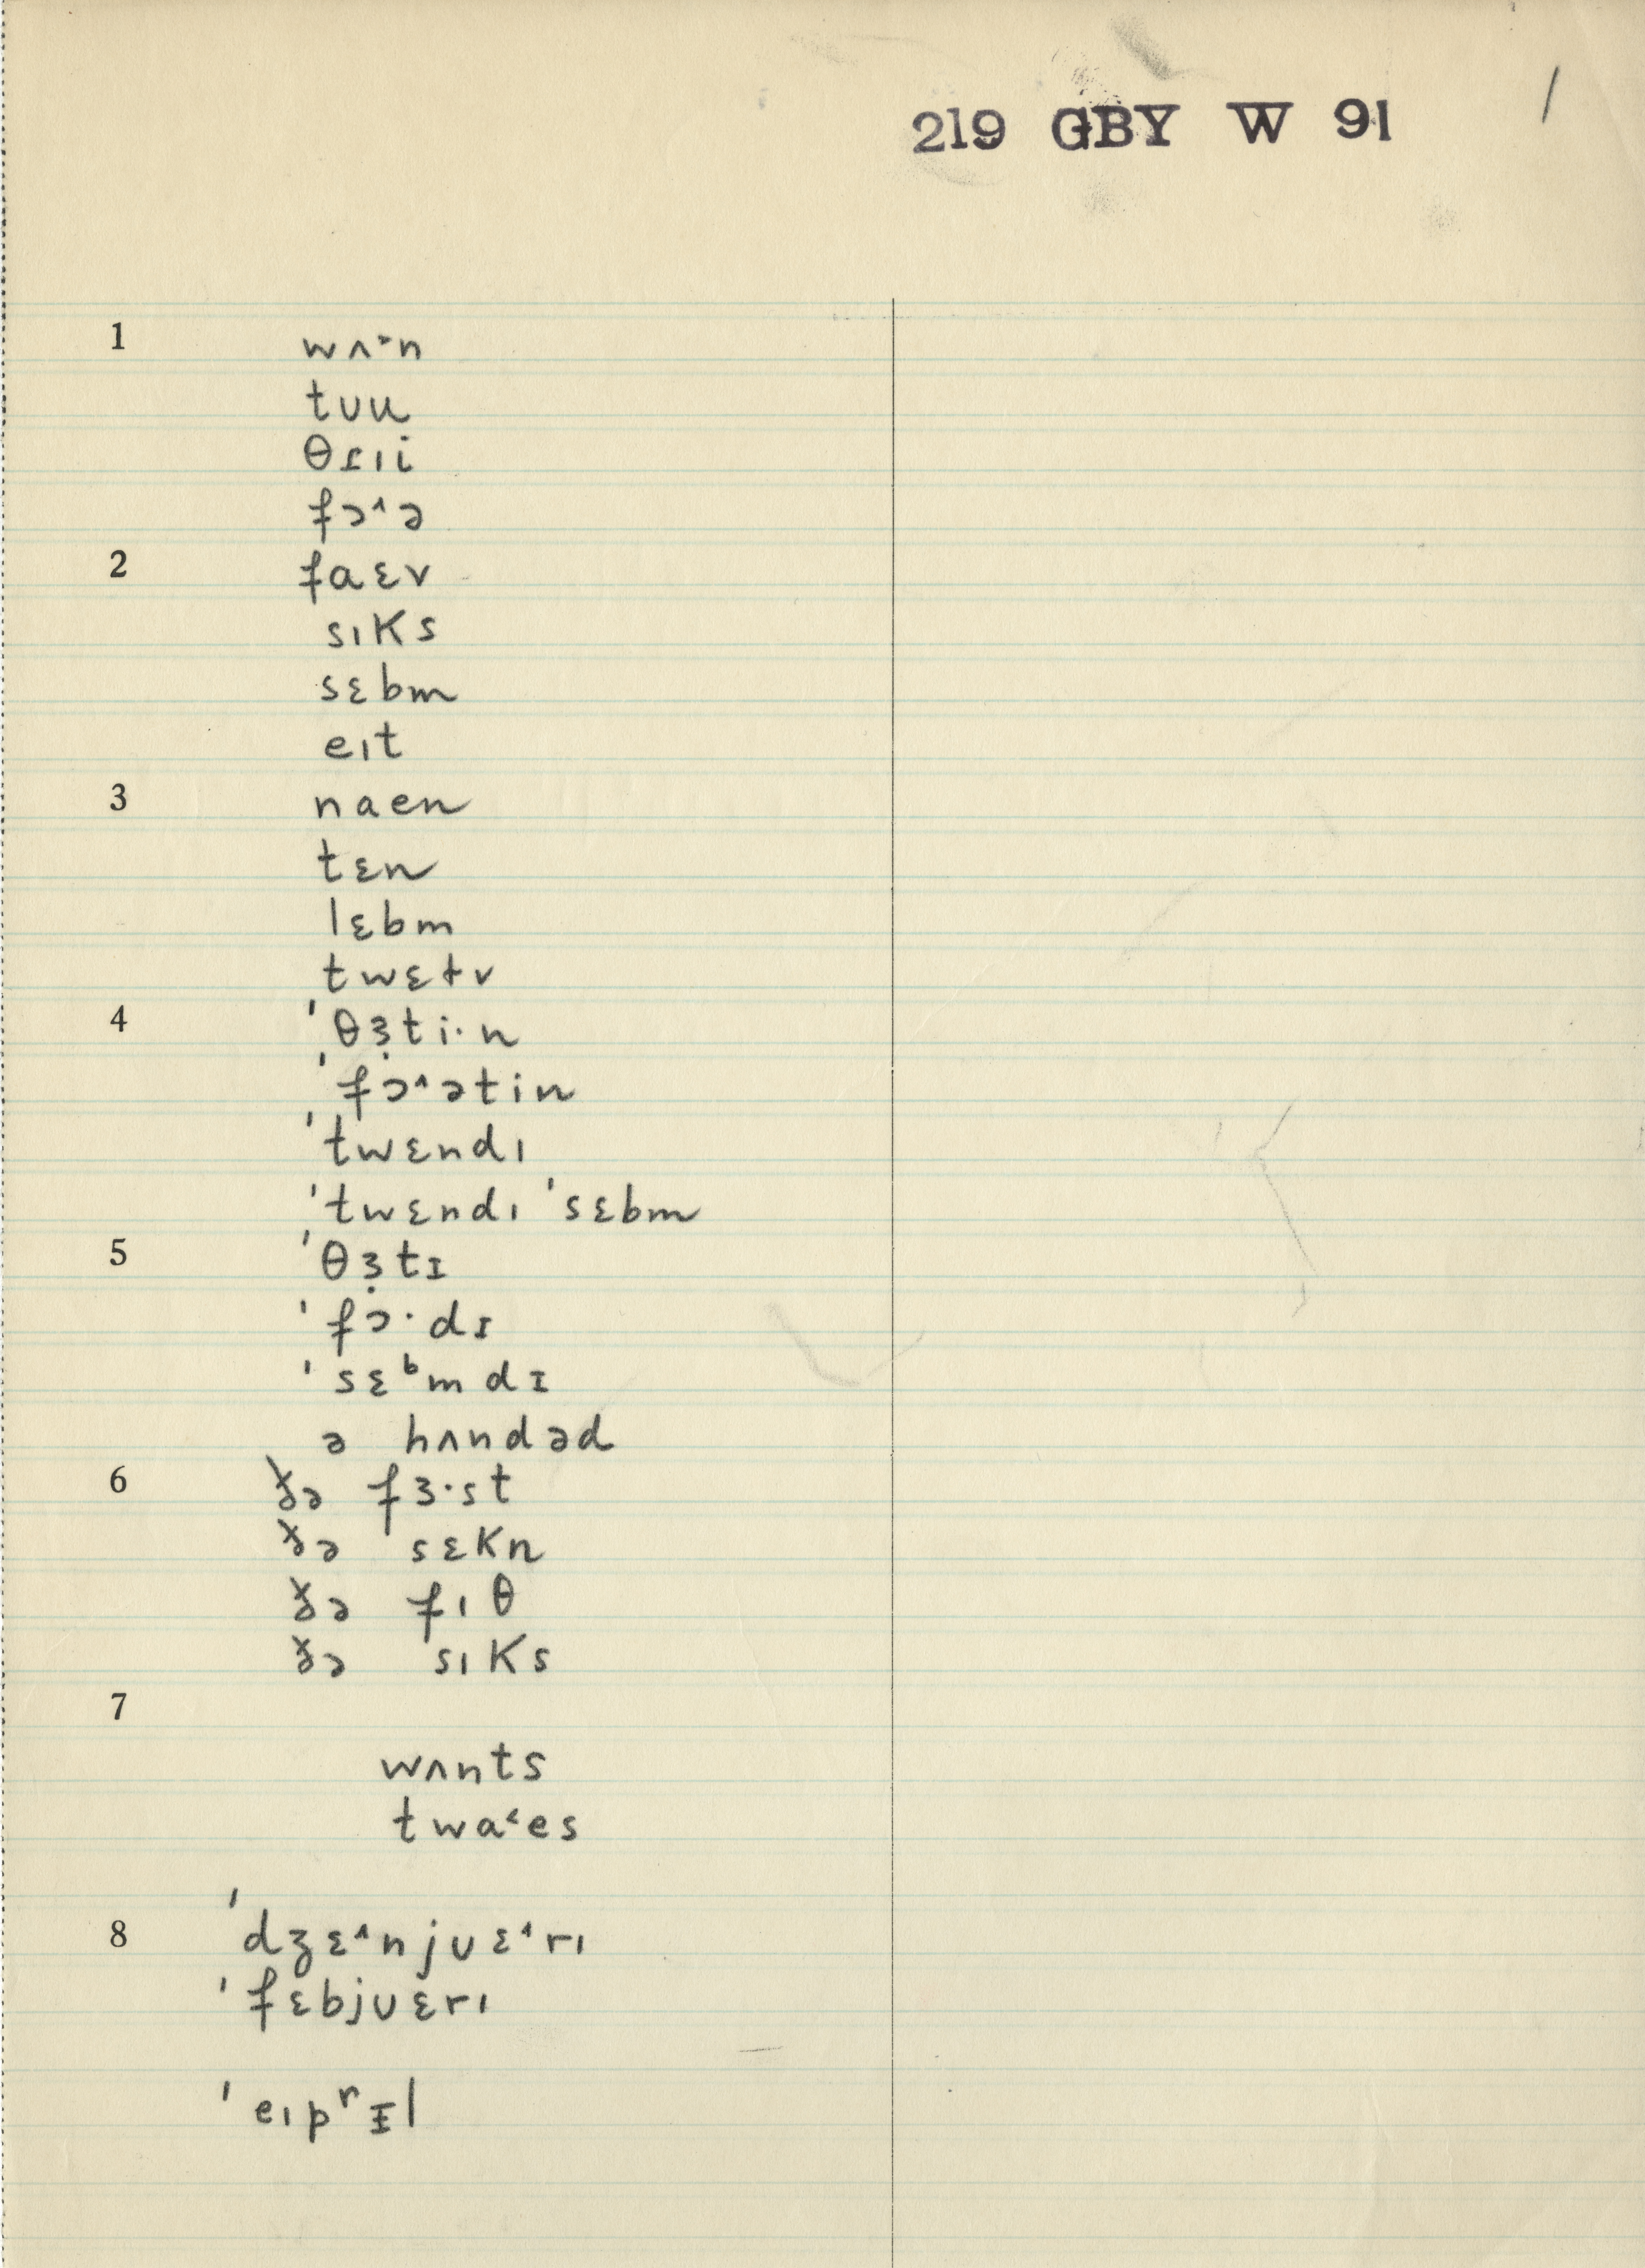 219 GBY W 91 /
1 wʌ˃n
tʊu
θɾɪi
fɔ˄ə
2 faɛv
sɪks
sɛbm
eɪt
3 naen
tɛn
lɛbm
twɛtv
4 ˈθɜ̣ti·n
ˈfɔ̣˄ətin
ˈtwɛndɪ
ˈtwɛndɪ ˈsɛbm
5 ˈθɜ̣tɪ
ˈfɔ̇·dɪ
ˈsɛᵇmdɪ
ə hʌndəd
6 ðə fɜ·st
ðə sɛkn
ðə fɪθ
ðə sɪks
7
wʌnts
twa˂es
8 ˈdʒɛ˄njʊɛ˄rɪ
ˈfɛbjʊɛrɪ
ˈeɪpʳᵻl